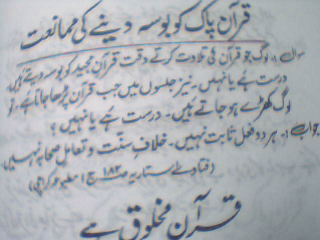 قرآن پاک کو بوسہ دینے کی ممانعت
سوال:۔ لوگ جو قرآن کی تلاوت کرتے وقت قرآن مجید کو بوسہ دیتے ہیں
درست ہے یا نہیں۔ نیز جلسوں میں جب قرآن پڑھا جاتا ہے، تو
لوگ کھڑے ہو جاتے ہیں۔ درست ہے یا نہیں؟
جواب:۔ ہر دو فعل ثابت نہیں۔ خلاف سنّت و تعامل صحابہ ہیں۔
(فتاویٰ ستاریہ ص ۱۸۳ ج ۱ مطبوعہ کراچی)
قرآن مخلوق ہے